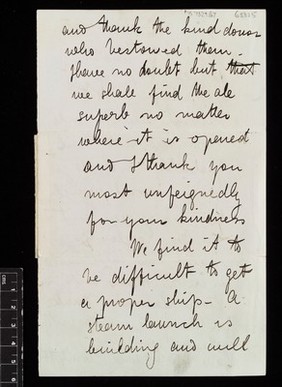 and thank the kind donor
who bestowed them.
I have no doubt but that
we shall find the ale
superb no matter
where it is opened
and I thank you
most unfeignedly
for your kindness
We find it to
be difficult to get
a proper ship - A
steam launch is
building and will